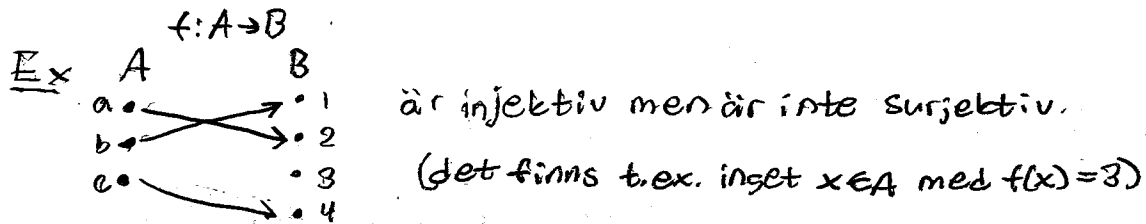 f: A→B
Ex A B
a • • 1 är injektiv men är inte surjektiv.
b • • 2
• 3 (det finns t.ex. inget x∈A med f(x)=3)
c • • 4